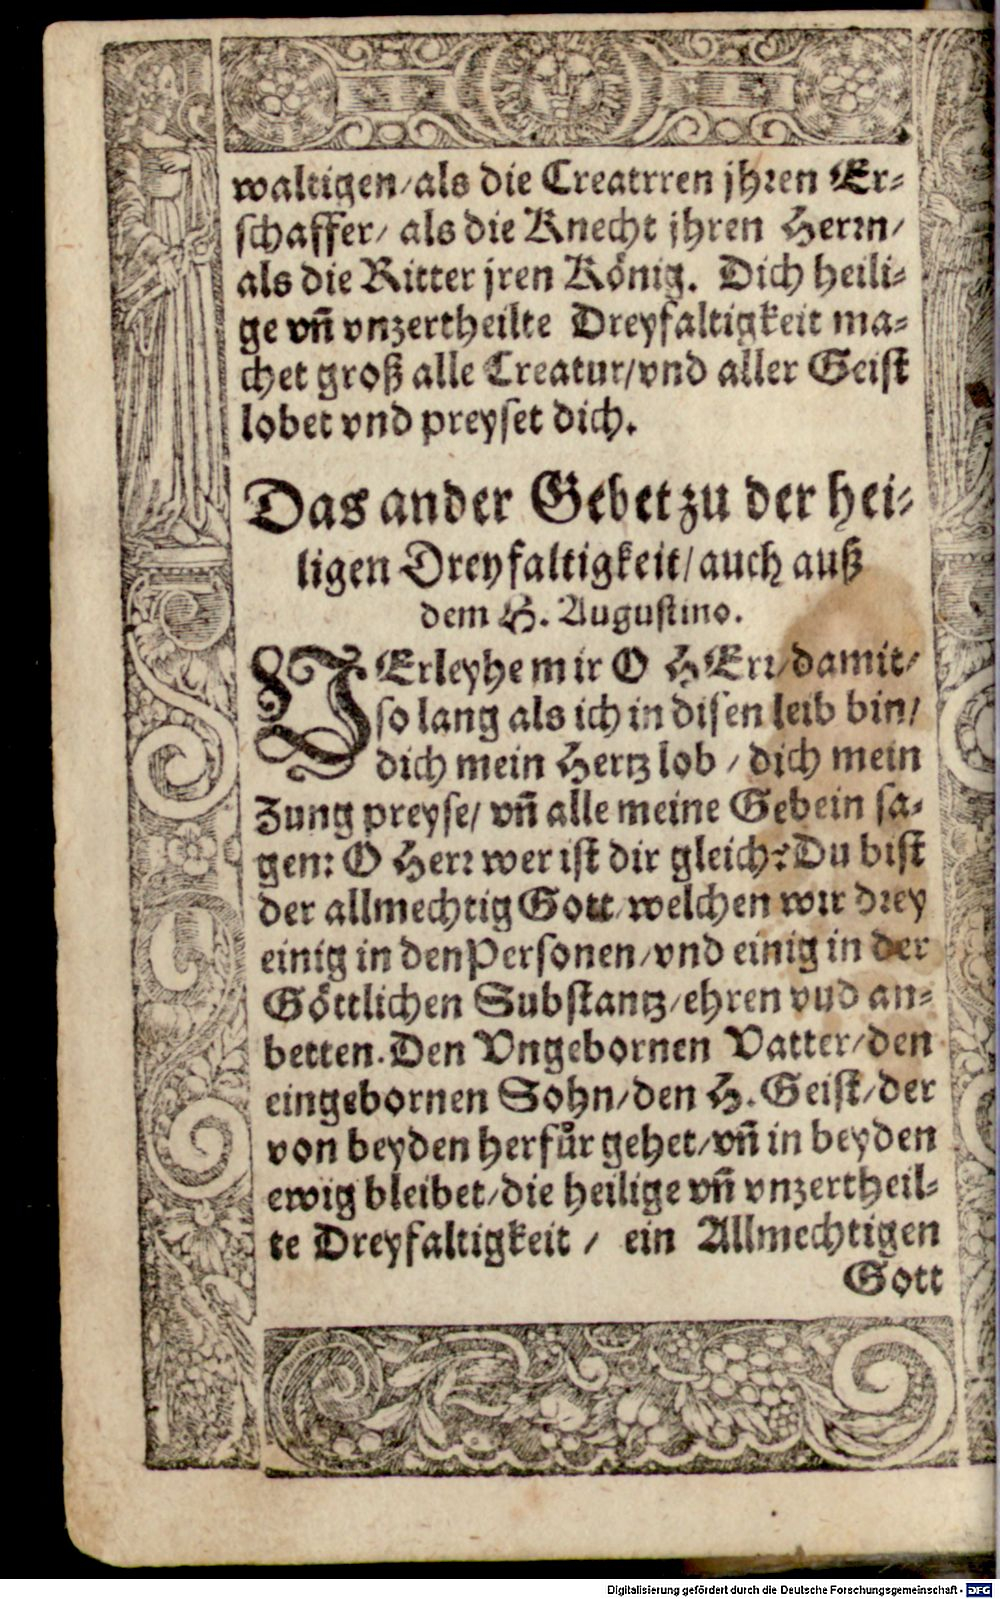 waltigen/als die Creatrren jhren Er-
schaffer/ als die Knecht jhren Herrn/
als die Ritter jren König. Dich heili-
ge vñ vnzertheilte Dreyfaltigkeit ma-
chet groß alle Creatur/vnd aller Geist
lobet vnd preyset dich.
Das ander Gebet zu der hei-
ligen Dreyfaltigkeit/auch auß
dem H. Augustino.
VErleyhe mir O HErr/damit/
so lang als ich in disen leib bin/
dich mein Hertz lob / dich mein
Zung preyse/ vñ alle meine Gebein sa-
gen: O Herr wer ist dir gleich? Du bist
der allmechtig Gott/welchen wir drey
einig in den Personen/vnd einig in der
Göttlichen Substantz/ehren vud an-
betten. Den Vngebornen Vatter/den
eingebornen Sohn/den H. Geist/der
von beyden herfůr gehet/vñ in beyden
ewig bleibet/die heilige vñ vnzertheil-
te Dreyfaltigkeit / ein Allmechtigen
Gott
Digitalisierung gefördert durch die Deutsche Forschungsgemeinschaft - DFG